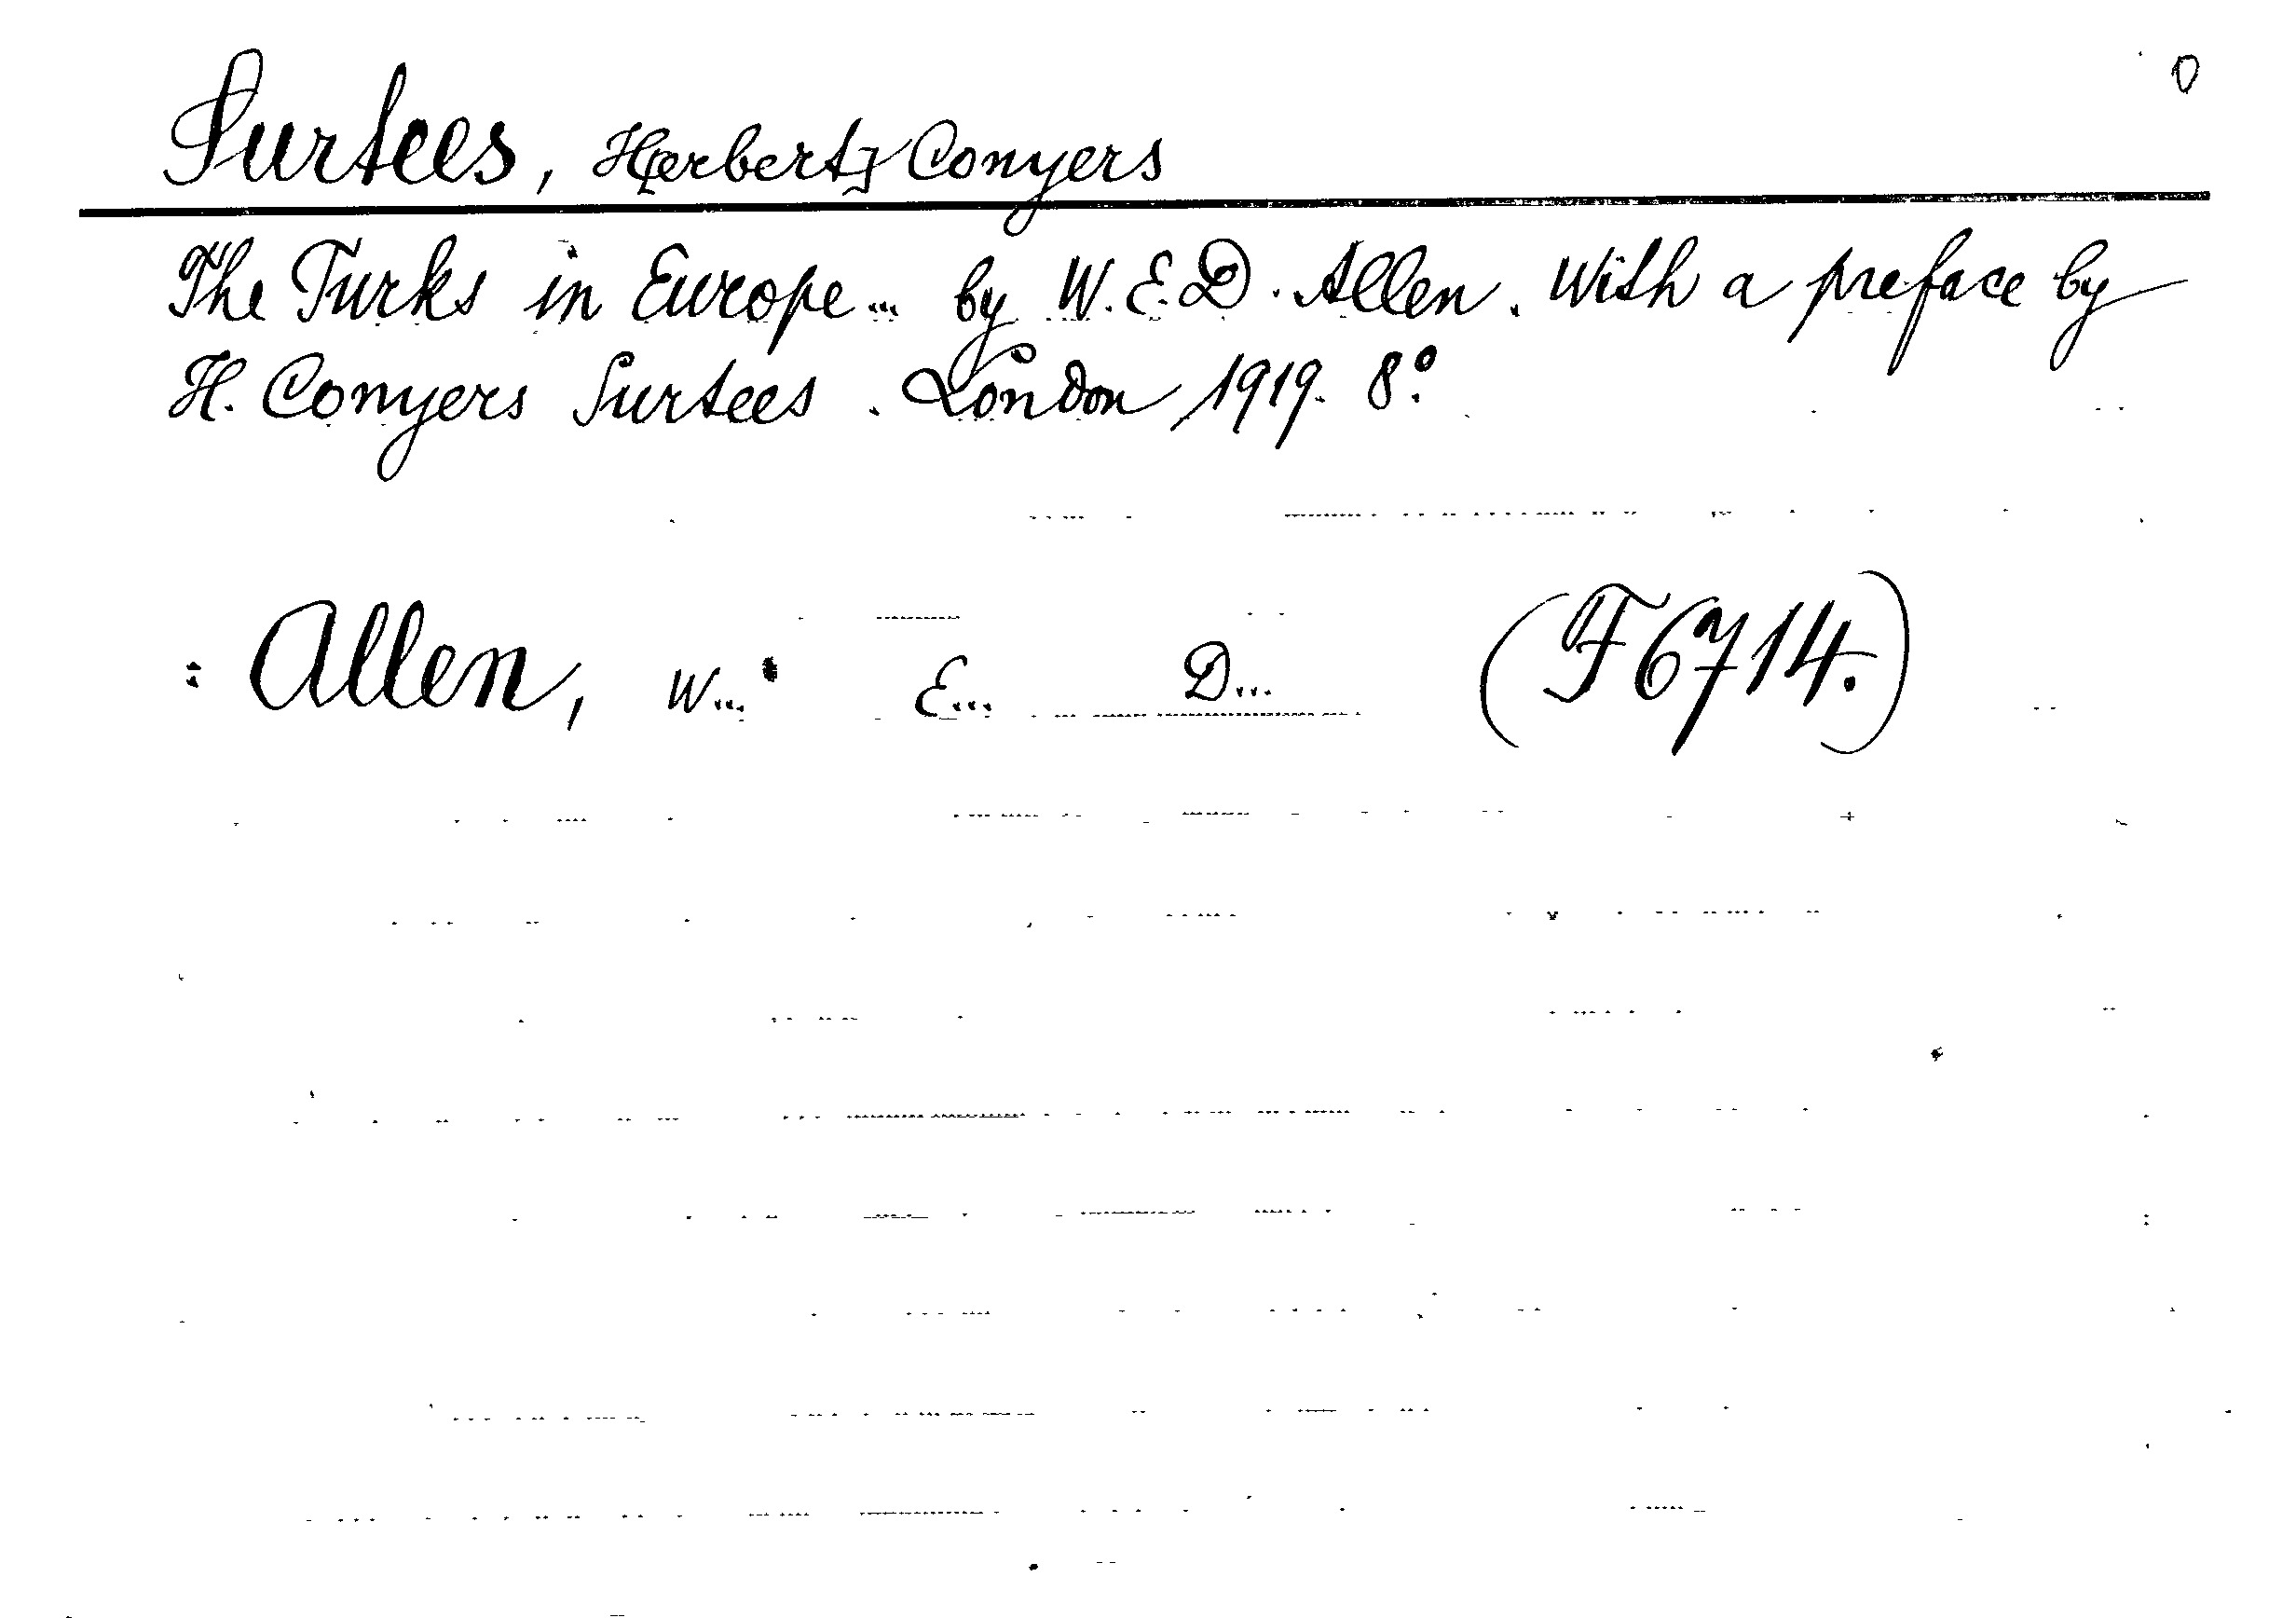 Surtees, H[erbert] Conyers
The Turks in Europe... by W. E. D. Allen. With a preface by
H. Conyers Surtees. London, 1919. 8°.
: Allen, W... E... D... (F6714.)